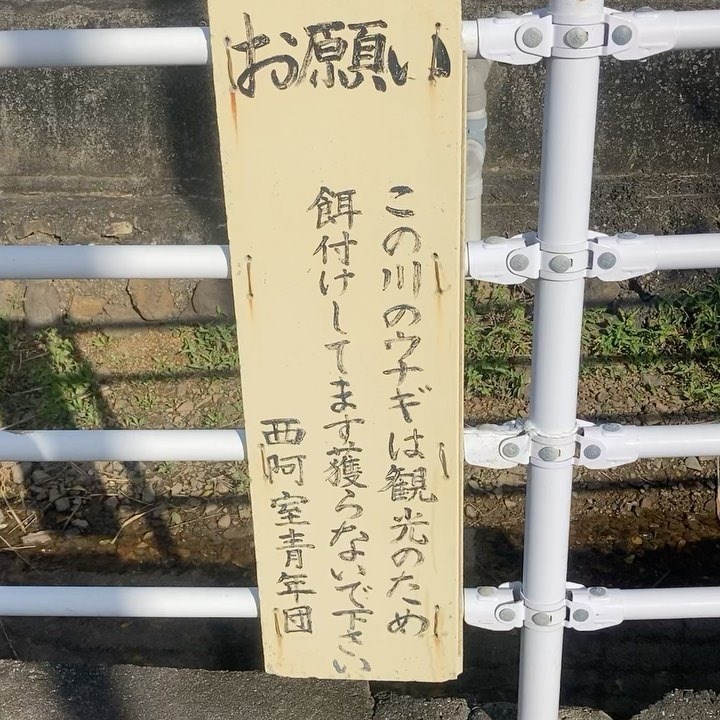 お願い
この川のウナギは観光のため
餌付けしてます獲らないで下さい
西阿室青年団